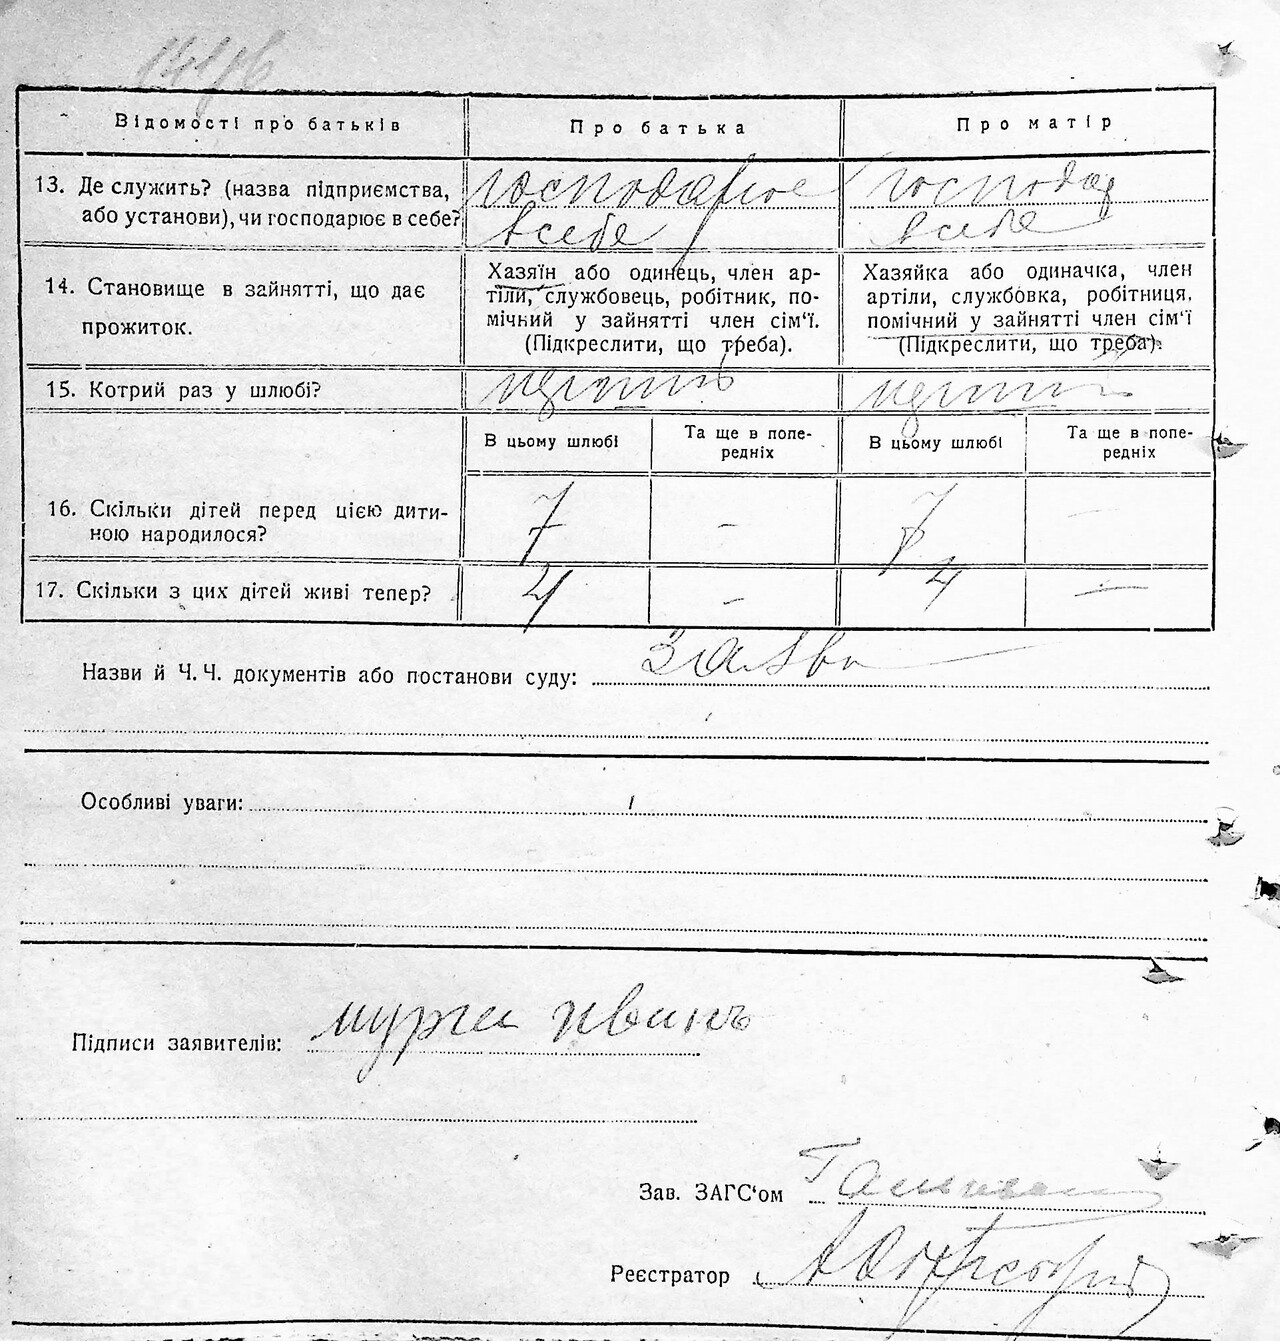 Відомості про батьків
Про батька
Про матір
13. Де служить? (назва підприємства,
або установи), чи господарює в себе?
господарює
в себе
господар
в себе
14. Становище в зайнятті, що дає
прожиток.
Хазяїн або одинець, член ар-
тіли, службовець, робітник, по-
мічний у зайнятті член сім'ї.
(Підкреслити, що треба).
Хазяйка або одиначка, член
артіли, службовка, робітниця,
помічний у зайнятті член сім'ї
(Підкреслити, що треба).
15. Котрий раз у шлюбі?
В цьому шлюбі
Та ще в попе-
редніх
В цьому шлюбі
Та ще в попе-
редніх
16. Скільки дітей перед цією дити-
ною народилося?
7 - 7 -
17. Скільки з цих дітей живі тепер?
4 - 4 -
Назви й Ч. Ч. документів або постанови суду: Заява
Особливі уваги:
Підписи заявителів:
Зав. ЗАГС'ом
Реєстратор